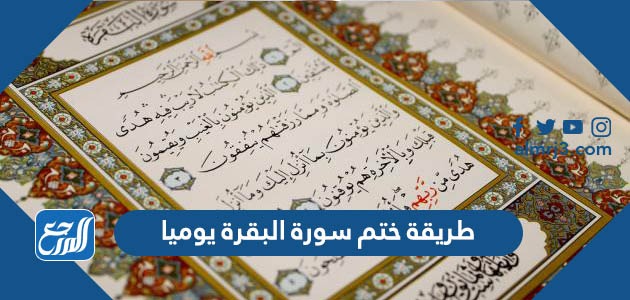 سورة البقرة
بسم الله الرحمن الرحيم
ذلك الكتب لا ريب فيه هدى
الذين يؤمنون بالغيب ويقيمون
الصلوة ومما رزقنهم ينفقون
والذين يؤمنون بما أنزل إليك وما أنزل
قبلك وبالآخرة هم يوقنون
هدى من ربهم
almrj3.com
طريقة ختم سورة البقرة يوميا
المرجع